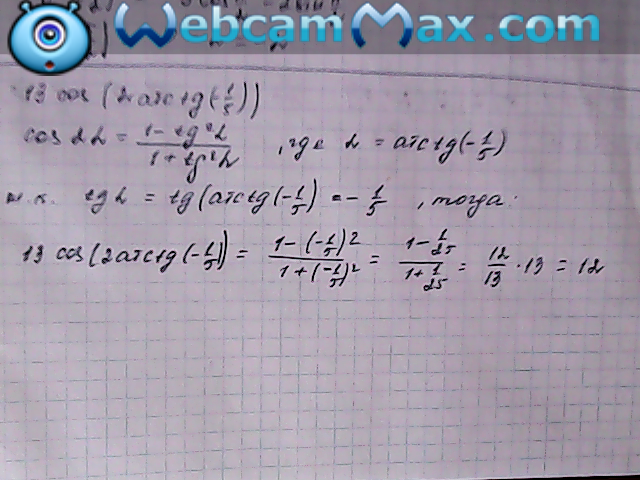 WebcamMax.com
13 cos (2arctg(-1/5))
cos 2α = (1 - tg²α)/(1 + tg²α) , где α = arctg(-1/5)
т.к. tg α = tg(arctg(-1/5) = -1/5 , тогда:
13 cos(2arctg(-1/5)) = (1 - (-1/5)²)/(1 + (-1/5)²) = (1 - 1/25)/(1 + 1/25) = 12/13 · 13 = 12